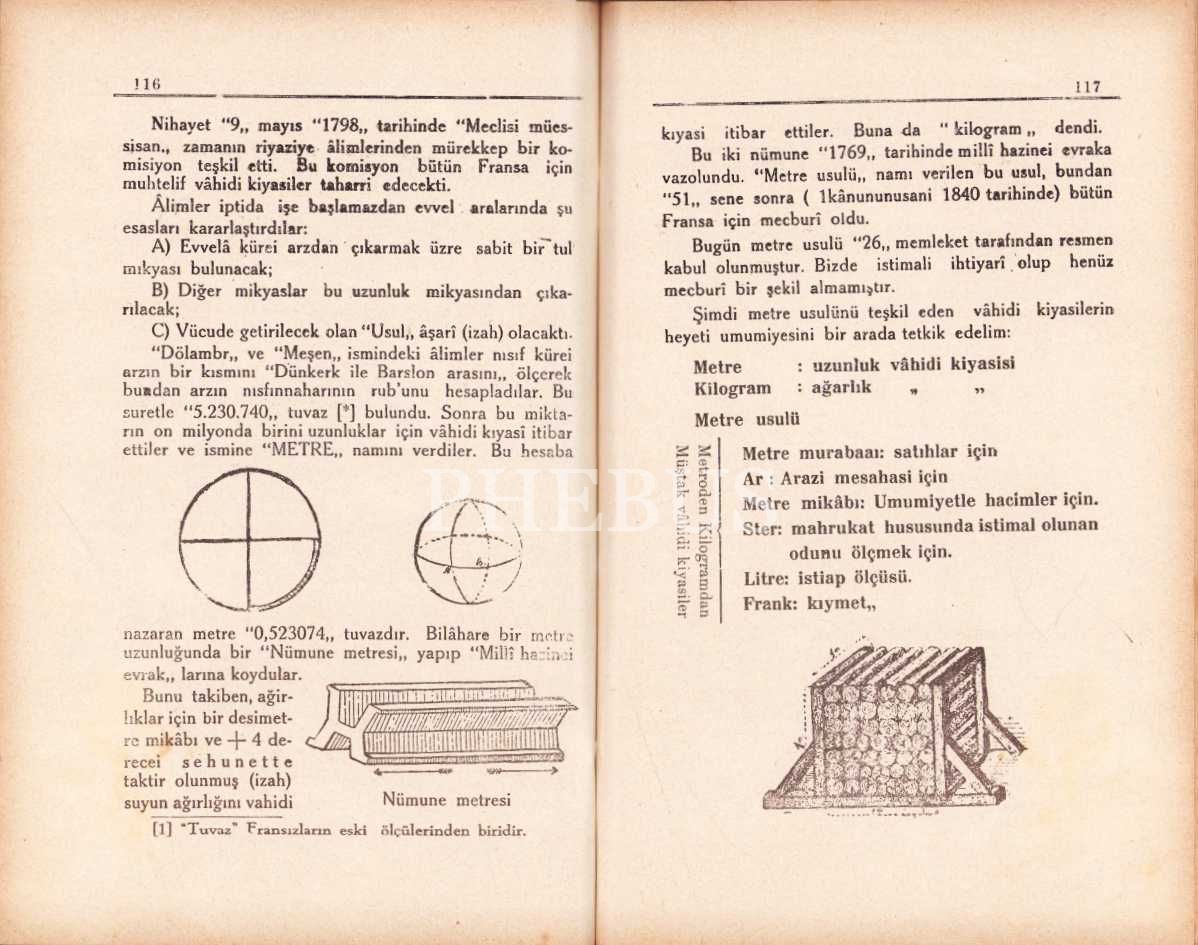 116
Nihayet “9„ mayıs “1798„ tarihinde “Meclisi mües-
sisan„ zamanın riyaziye âlimlerinden mürekkep bir ko-
misiyon teşkil etti. Bu komisyon bütün Fransa için
muhtelif vâhidi kiyasiler taharri edecekti.
Âlimler iptida işe başlamazdan evvel aralarında şu
esasları kararlaştırdılar:
A) Evvelâ kürei arzdan çıkarmak üzre sabit bir tul
mıkyası bulunacak;
B) Diğer mikyaslar bu uzunluk mikyasından çıka-
rılacak;
C) Vücude getirilecek olan “Usul„ âşarî (izah) olacaktı.
“Dölambr„ ve “Meşen„ ismindeki âlimler nısıf kürei
arzın bir kısmını “Dünkerk ile Barslon arasını„ ölçerek
bundan arzın nısfınnaharının rub'unu hesapladılar. Bu
suretle “5.230.740„ tuvaz [*] bulundu. Sonra bu mikta-
rın on milyonda birini uzunluklar için vâhidi kıyasî itibar
ettiler ve ismine “METRE„ namını verdiler. Bu hesaba
nazaran metre “0,523074„ tuvazdır. Bilâhare bir metre
uzunluğunda bir “Nümune metresi„ yapıp “Millî hazinei
evrak„ larına koydular.
Bunu takiben, ağır-
lıklar için bir desimet-
re mikâbı ve + 4 de-
recei sehunette
taktir olunmuş (izah)
suyun ağırlığını vahidi
Nümune metresi
[1] “Tuvaz” Fransızların eski ölçülerinden biridir.
117
kıyasi itibar ettiler. Buna da “kilogram„ dendi.
Bu iki nümune “1769„ tarihinde millî hazinei evraka
vazolundu. “Metre usulü„ namı verilen bu usul, bundan
“51„ sene sonra ( 1kânununusani 1840 tarihinde) bütün
Fransa için mecburî oldu.
Bugün metre usulü “26„ memleket tarafından resmen
kabul olunmuştur. Bizde istimali ihtiyarî olup henüz
mecburî bir şekil almamıştır.
Şimdi metre usulünü teşkil eden vâhidi kiyasilerin
heyeti umumiyesini bir arada tetkik edelim:
Metre : uzunluk vâhidi kiyasisi
Kilogram : ağarlık „ „
Metre usulü
Metroden Kilogramdan
Müştak vâhidi kiyasiler
Metre murabaaı: satıhlar için
Ar : Arazi mesahasi için
Metre mikâbı: Umumiyetle hacimler için.
Ster: mahrukat hususunda istimal olunan
odunu ölçmek için.
Litre: istiap ölçüsü.
Frank: kıymet„
PHEBUS